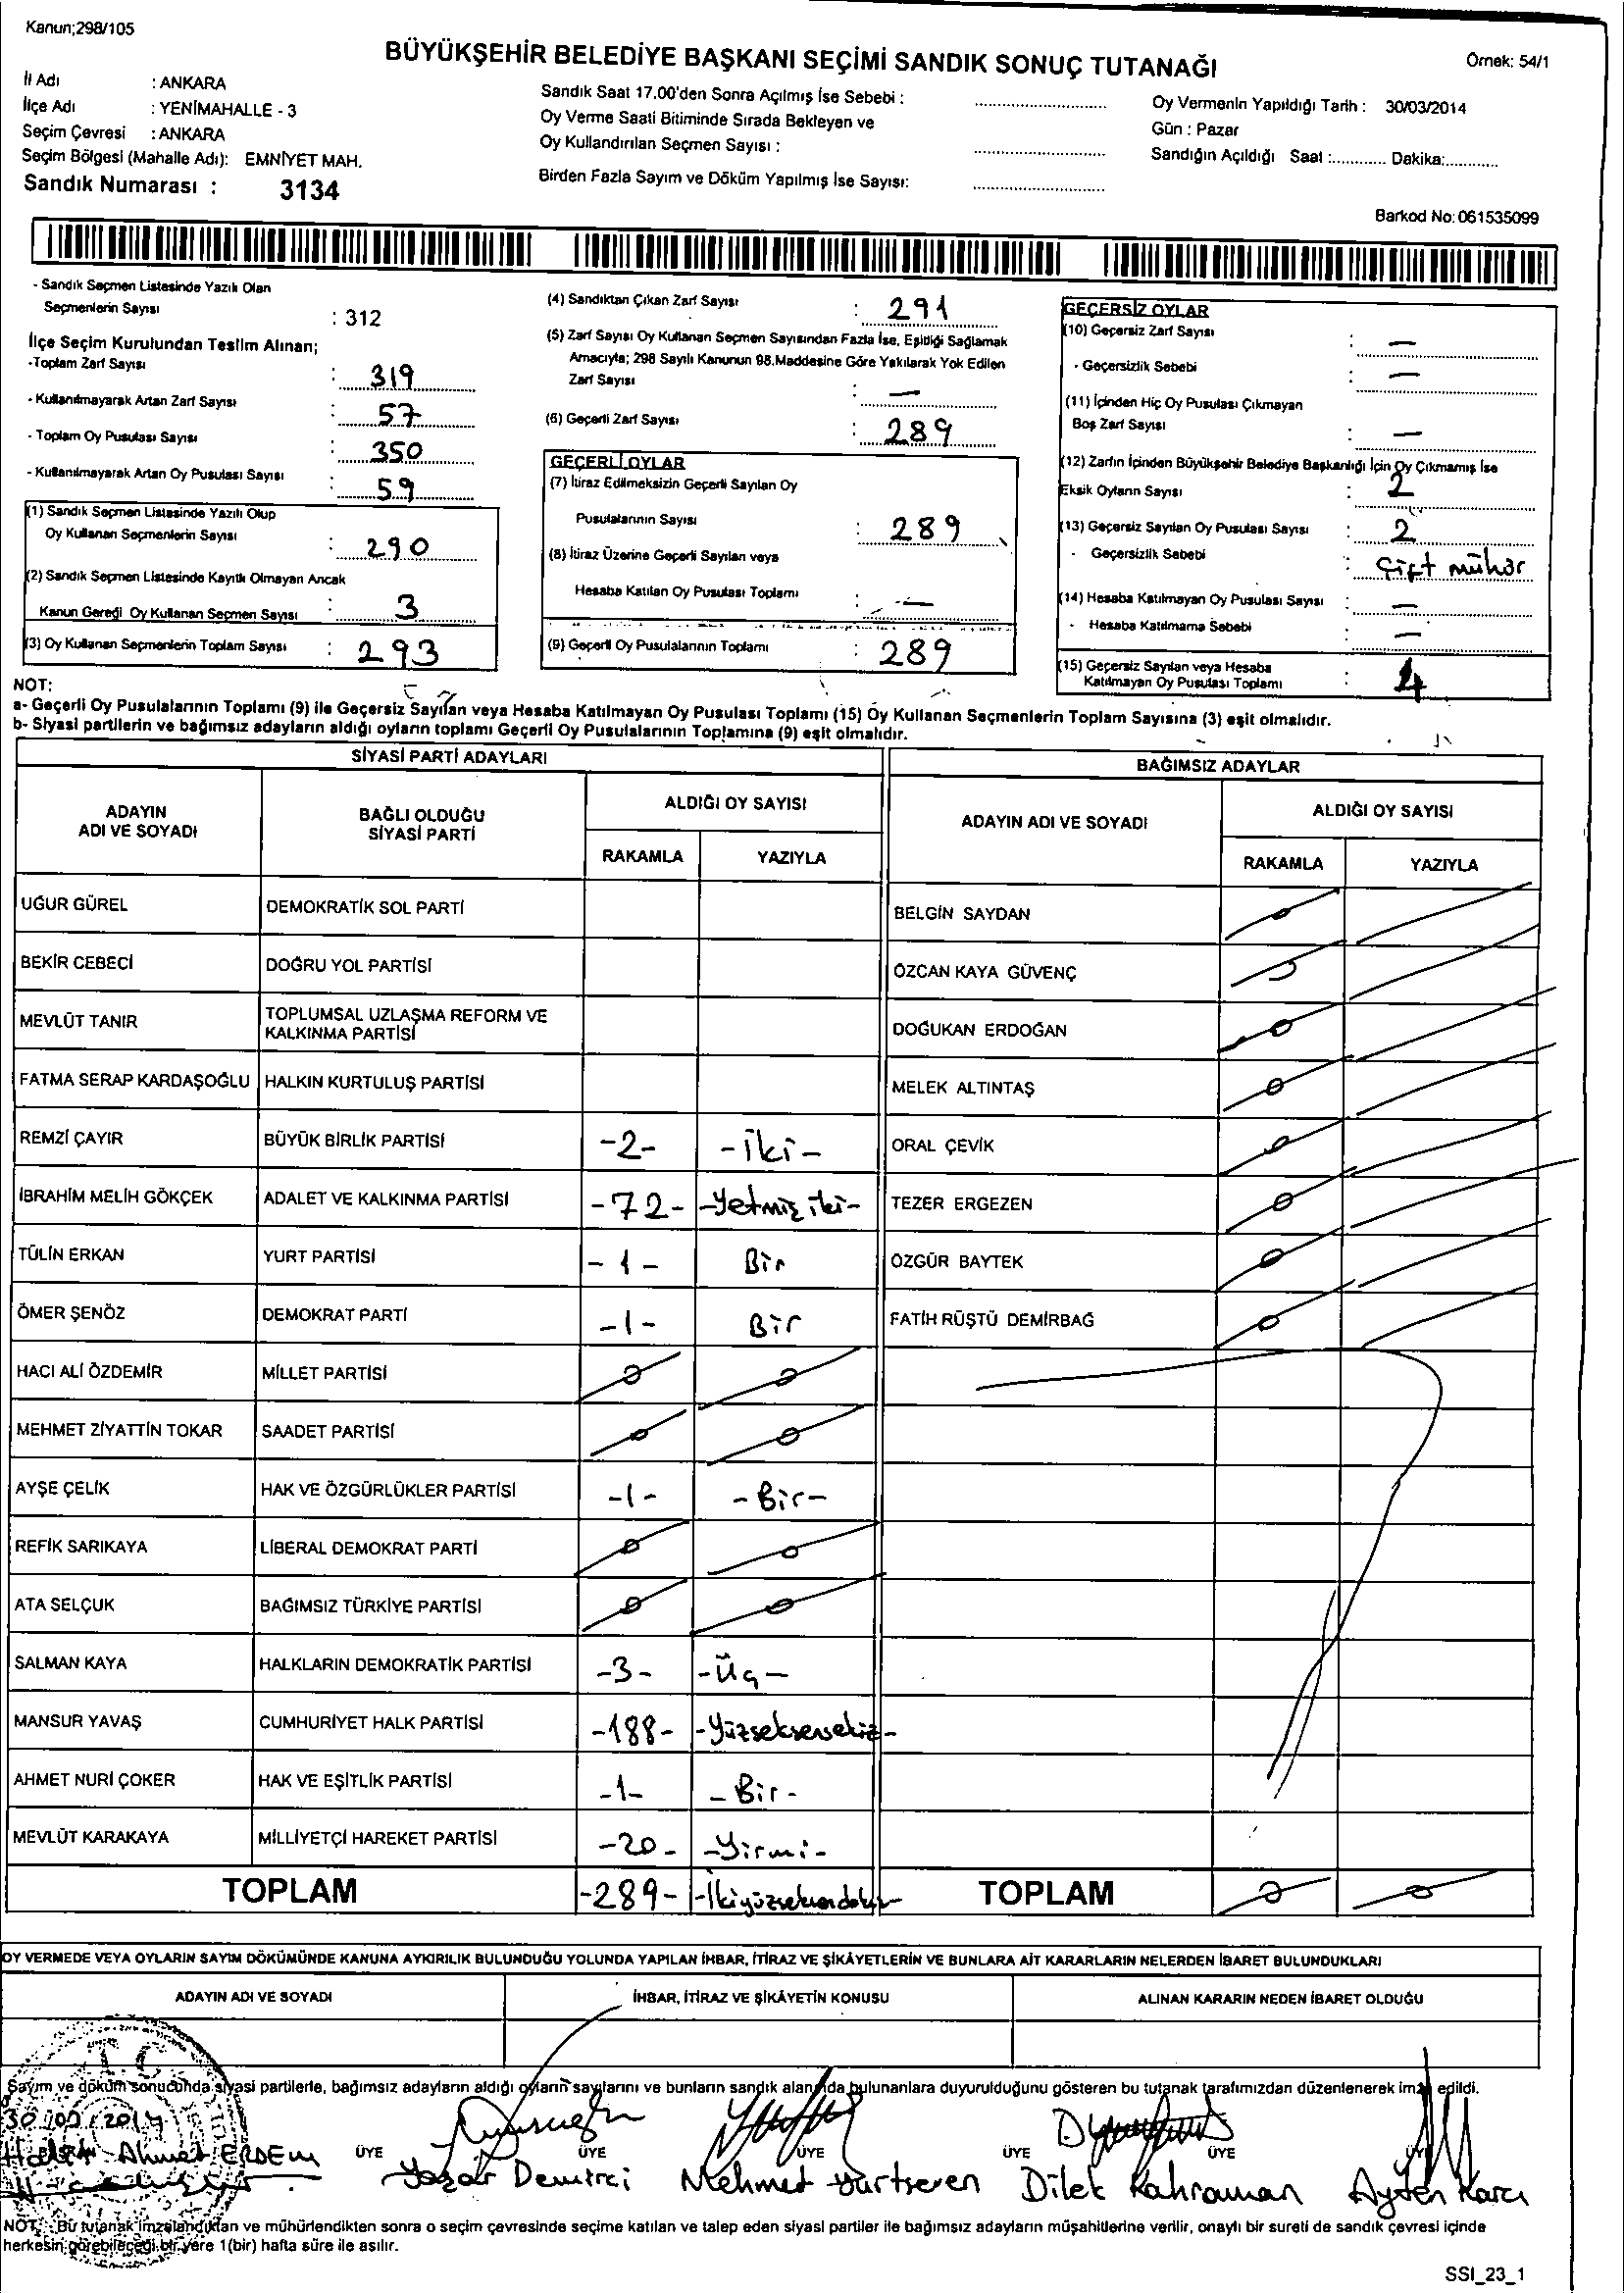 Kanun;298/105
BÜYÜKŞEHİR BELEDİYE BAŞKANI SEÇİMİ SANDIK SONUÇ TUTANAĞI
Örnek: 54/1
İl Adı : ANKARA
İlçe Adı : YENİMAHALLE - 3
Seçim Çevresi : ANKARA
Seçim Bölgesi (Mahalle Adı): EMNİYET MAH.
Sandık Numarası : 3134
Sandık Saat 17.00'den Sonra Açılmış İse Sebebi :
Oy Verme Saati Bitiminde Sırada Bekleyen ve
Oy Kullandırılan Seçmen Sayısı :
Birden Fazla Sayım ve Döküm Yapılmış İse Sayısı:
Oy Vermenin Yapıldığı Tarih : 30/03/2014
Gün : Pazar
Sandığın Açıldığı Saat :............ Dakika:............
Barkod No: 061535099
- Sandık Seçmen Listesinde Yazılı Olan
Seçmenlerin Sayısı : 312
İlçe Seçim Kurulundan Teslim Alınan;
-Toplam Zarf Sayısı : 319
- Kullanılmayarak Artan Zarf Sayısı : 57
- Toplam Oy Pusulası Sayısı : 350
- Kullanılmayarak Artan Oy Pusulası Sayısı : 59
(1) Sandık Seçmen Listesinde Yazılı Olup
Oy Kullanan Seçmenlerin Sayısı : 290
(2) Sandık Seçmen Listesinde Kayıtlı Olmayan Ancak
Kanun Gereği Oy Kullanan Seçmen Sayısı : 3
(3) Oy Kullanan Seçmenlerin Toplam Sayısı : 293
(4) Sandıktan Çıkan Zarf Sayısı : 291
(5) Zarf Sayısı Oy Kullanan Seçmen Sayısından Fazla İse, Eşitliği Sağlamak
Amacıyla; 298 Sayılı Kanunun 98.Maddesine Göre Yakılarak Yok Edilen
Zarf Sayısı : —
(6) Geçerli Zarf Sayısı : 289
GEÇERLİ OYLAR
(7) İtiraz Edilmeksizin Geçerli Sayılan Oy
Pusulalarının Sayısı : 289
(8) İtiraz Üzerine Geçerli Sayılan veya
Hesaba Katılan Oy Pusulası Toplamı : —
(9) Geçerli Oy Pusulalarının Toplamı : 289
GEÇERSİZ OYLAR
(10) Geçersiz Zarf Sayısı : —
- Geçersizlik Sebebi : —
(11) İçinden Hiç Oy Pusulası Çıkmayan
Boş Zarf Sayısı : —
(12) Zarfın İçinden Büyükşehir Belediye Başkanlığı İçin Oy Çıkmamış İse
Eksik Oyların Sayısı : 2
(13) Geçersiz Sayılan Oy Pusulası Sayısı : 2
- Geçersizlik Sebebi : Çift mühür
(14) Hesaba Katılmayan Oy Pusulası Sayısı : —
- Hesaba Katılmama Sebebi : —
(15) Geçersiz Sayılan veya Hesaba
Katılmayan Oy Pusulası Toplamı : 4
NOT:
a- Geçerli Oy Pusulalarının Toplamı (9) ile Geçersiz Sayılan veya Hesaba Katılmayan Oy Pusulası Toplamı (15) Oy Kullanan Seçmenlerin Toplam Sayısına (3) eşit olmalıdır.
b- Siyasi partilerin ve bağımsız adayların aldığı oyların toplamı Geçerli Oy Pusulalarının Toplamına (9) eşit olmalıdır.
SİYASİ PARTİ ADAYLARI
ADAYIN ADI VE SOYADI
BAĞLI OLDUĞU SİYASİ PARTİ
ALDIĞI OY SAYISI
RAKAMLA YAZIYLA
UĞUR GÜREL DEMOKRATİK SOL PARTİ
BEKİR CEBECİ DOĞRU YOL PARTİSİ
MEVLÜT TANIR TOPLUMSAL UZLAŞMA REFORM VE KALKINMA PARTİSİ
FATMA SERAP KARDAŞOĞLU HALKIN KURTULUŞ PARTİSİ
REMZİ ÇAYIR BÜYÜK BİRLİK PARTİSİ -2- -iki-
İBRAHİM MELİH GÖKÇEK ADALET VE KALKINMA PARTİSİ -72- -Yetmiş iki-
TÜLİN ERKAN YURT PARTİSİ -1- Bir
ÖMER ŞENÖZ DEMOKRAT PARTİ -1- Bir
HACI ALİ ÖZDEMİR MİLLET PARTİSİ 0 0
MEHMET ZİYATTİN TOKAR SAADET PARTİSİ 0 0
AYŞE ÇELİK HAK VE ÖZGÜRLÜKLER PARTİSİ -1- -Bir-
REFİK SARIKAYA LİBERAL DEMOKRAT PARTİ 0 0
ATA SELÇUK BAĞIMSIZ TÜRKİYE PARTİSİ 0 0
SALMAN KAYA HALKLARIN DEMOKRATİK PARTİSİ -3- -Üç-
MANSUR YAVAŞ CUMHURİYET HALK PARTİSİ -188- -Yüzseksensekiz-
AHMET NURİ ÇOKER HAK VE EŞİTLİK PARTİSİ -1- -Bir-
MEVLÜT KARAKAYA MİLLİYETÇİ HAREKET PARTİSİ -20- -Yirmi-
TOPLAM -289- -İkiyüzseksendokuz-
BAĞIMSIZ ADAYLAR
ADAYIN ADI VE SOYADI
ALDIĞI OY SAYISI
RAKAMLA YAZIYLA
BELGİN SAYDAN 0
ÖZCAN KAYA GÜVENÇ 0
DOĞUKAN ERDOĞAN 0
MELEK ALTINTAŞ 0
ORAL ÇEVİK 0
TEZER ERGEZEN 0
ÖZGÜR BAYTEK 0
FATİH RÜŞTÜ DEMİRBAĞ 0
TOPLAM 0 0
OY VERMEDE VEYA OYLARIN SAYIM DÖKÜMÜNDE KANUNA AYKIRILIK BULUNDUĞU YOLUNDA YAPILAN İHBAR, İTİRAZ VE ŞİKÂYETLERİN VE BUNLARA AİT KARARLARIN NELERDEN İBARET BULUNDUKLARI
ADAYIN ADI VE SOYADI
İHBAR, İTİRAZ VE ŞİKÂYETİN KONUSU
ALINAN KARARIN NEDEN İBARET OLDUĞU
T.C
Sayım ve döküm sonucunda siyasi partilerle, bağımsız adayların aldığı oyların sayılarını ve bunların sandık alanında bulunanlara duyurulduğunu gösteren bu tutanak tarafımızdan düzenlenerek imza edildi.
30/03/2014
Ahmet ERDEM
ÜYE ÜYE ÜYE ÜYE ÜYE ÜYE
Yaşar Demirci Mehmet Yurtseven Dilek Kahraman Ayten Karcı
NOT: Bu tutanak imzalandıktan ve mühürlendikten sonra o seçim çevresinde seçime katılan ve talep eden siyasi partiler ile bağımsız adayların müşahitlerine verilir, onaylı bir sureti de sandık çevresi içinde
herkesin görebileceği bir yere 1(bir) hafta süre ile asılır.
SSI_23_1